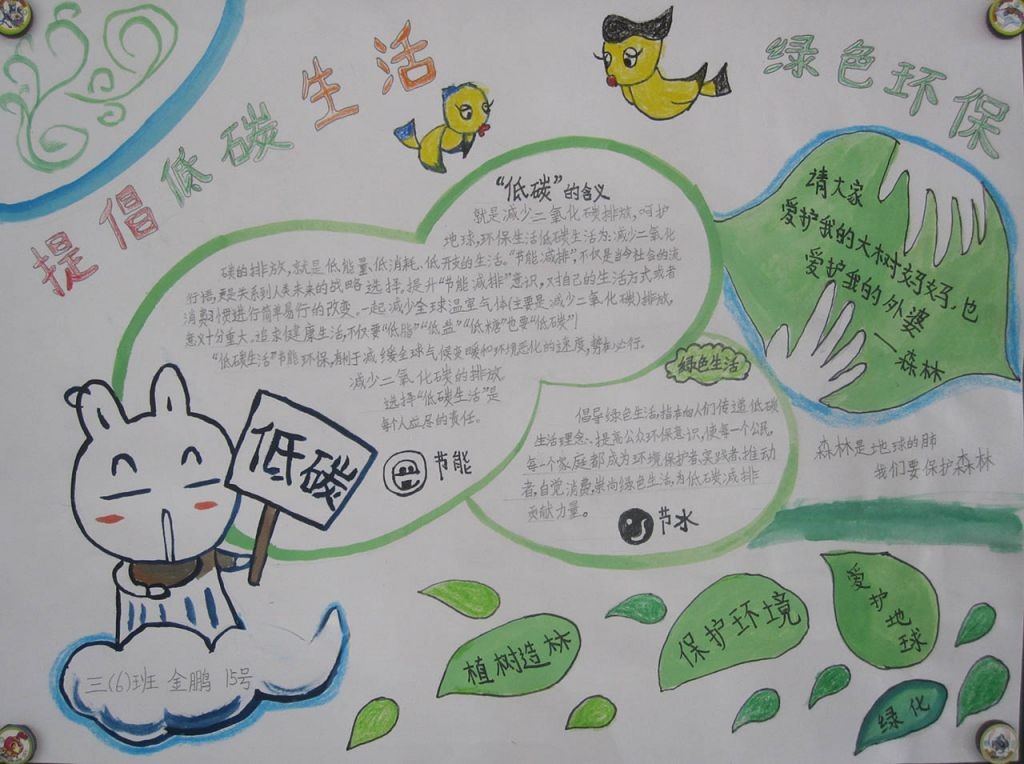 提倡低碳生活
绿色环保
“低碳”的含义
就是减少二氧化碳排放，呵护
地球，环保生活低碳生活为：减少二氧化
碳的排放，就是低能量、低消耗、低开支的生活。“节能减排”，不仅是当今社会的流
行语，更是关系到人类未来的战略选择，提升“节能减排”意识，对自己的生活方式或者
消费习惯进行简单易行的改变，一起减少全球温室气体(主要是减少二氧化碳)排放，
意义十分重大。追求健康生活，不仅要“低脂”“低盐”“低糖”也要“低碳”！
“低碳生活”节能环保，利于减缓全球气候变暖和环境恶化的速度，势在必行。
减少二氧化碳的排放
选择“低碳生活”是
每个人应尽的责任。
节能
绿色生活
倡导绿色生活，指在向人们传递低碳
生活理念、提高公众环保意识，使每一个公民，
每一个家庭都成为环境保护者、实践者、推动
者，自觉消费，崇向绿色生活，为低碳减排
贡献力量。
节水
请大家
爱护我的大树妈妈，也
爱护我的外婆
——森林
森林是地球的肺
我们要保护森林
低碳
三(6)班 金鹏 15号
植树造林
保护环境
爱护地球
绿化